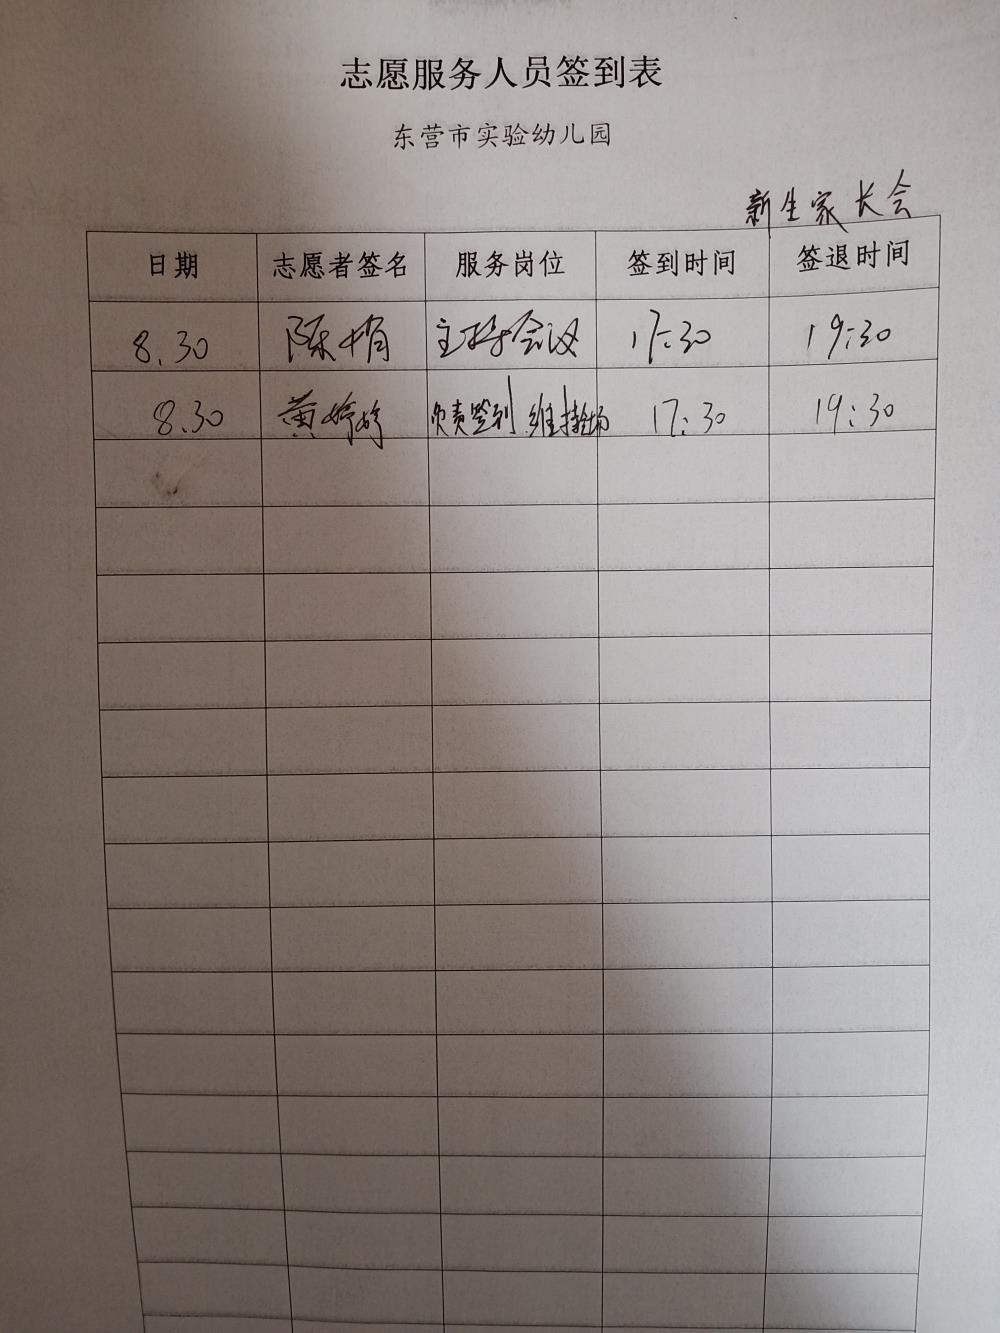 志愿服务人员签到表
东营市实验幼儿园
新生家长会
日期 志愿者签名 服务岗位 签到时间 签退时间
8.30 陈 主持会议 17:30 19:30
8.30 黄婷婷 负责签到 维持 17:30 19:30